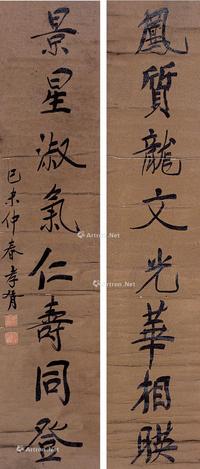 鳳質龍文光華相暎
景星淑氣仁壽同登
己未仲春孝胥
Artron.Net
Artron.Net
Artron.Net
Artron.Net